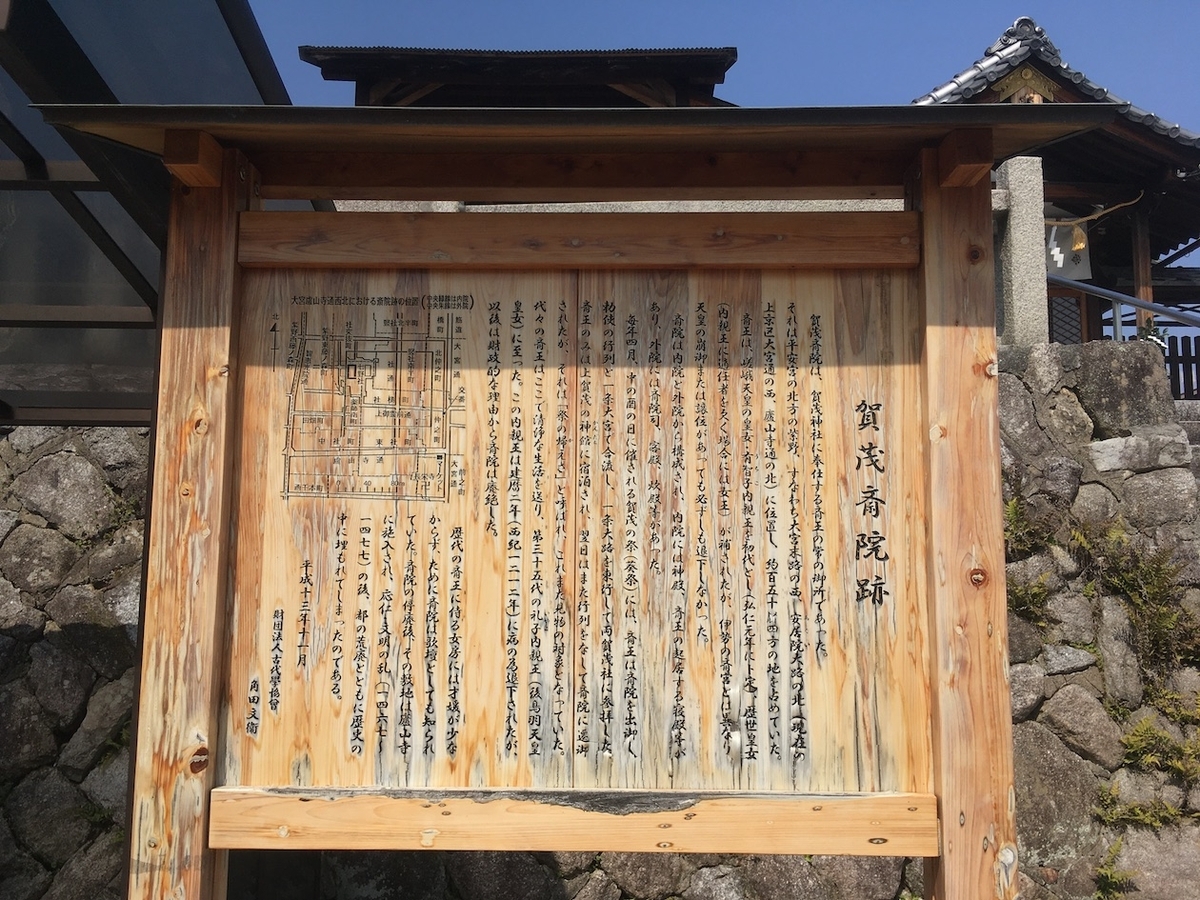 賀茂斎院跡
賀茂斎院は、賀茂神社に奉仕する斎王の常の御所であった。
それは平安宮の北方の紫野、すなわち大宮末路の西、安居院大路の北(現在の
上京区大宮通の西、廬山寺通の北)に位置し、約百五十㍍四方の地を占めていた。
斎王は、嵯峨天皇の皇女・有智子内親王を初代とし(弘仁元年に卜定)、歴世皇女
(内親王に適任者を欠く場合には女王)が補されたが、伊勢の斎宮とは異なり、
天皇の崩御または譲位があっても必ずしも退下しなかった。
斎院は内院と外院から構成され、内院には神殿、斎王の起居する寝殿等が
あり、外院には斎院司、客殿、炊殿等があった。
毎年四月、中の酉の日に催される賀茂の祭(葵祭)には、斎王は斎院を出御し、
勅使の行列と一条大宮で合流し、一条大路を東行して両賀茂社に参拝した。
斎王のみは上賀茂の神館に宿泊され、翌日はまた行列をなして斎院に還御
されたが、それは「祭の帰えさ」と呼ばれ、これまた見物の対象となっていた。
代々の斎王はここで清浄な生活を送り、第三十五代の礼子内親王(後鳥羽天皇
皇女)に至った。この内親王は建暦二年(西紀一二一二年)に病の為退下されたが、
以後は財政的な理由から斎院は廃絶した。
歴代の斎王に侍る女房には才媛が少な
からず、ために斎院は歌壇としても知られ
ていた。斎院の停廃後、その敷地は廬山寺
に施入され、応仁・文明の乱(一四六七〜
一四七七)の後、都の荒廃とともに歴史の
中に埋もれてしまったのである。
平成十三年十一月
財団法人古代學協會
角田文衞
大宮廬山寺通西北における斎院跡の位置
北
大宮通